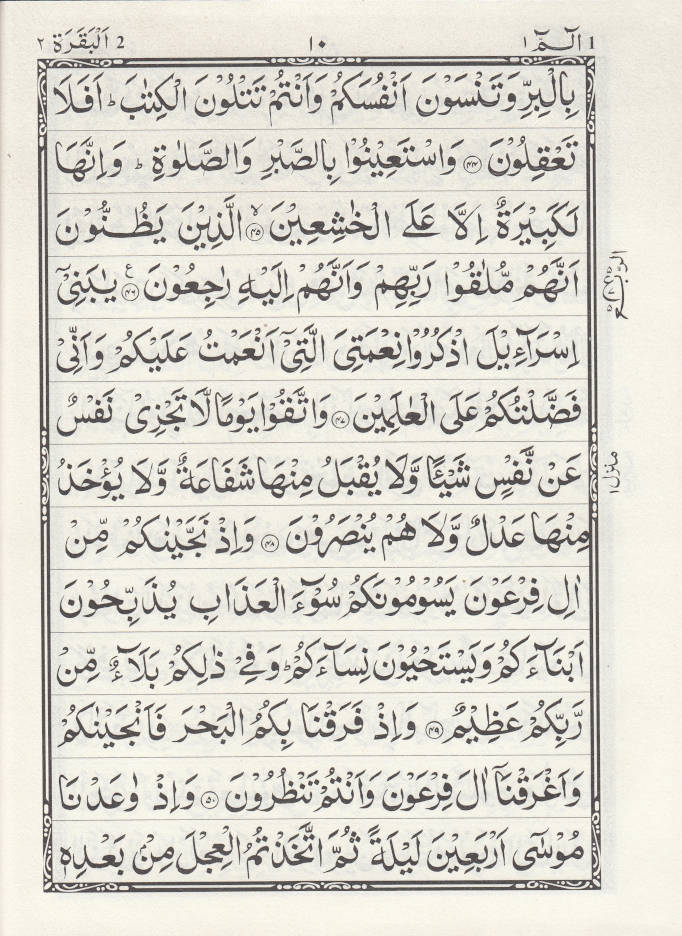 1 الٓمّٓ ١ ١٠ 2 اَلْبَقَرَة ٢
بِالْبِرِّ وَتَنْسَوْنَ اَنْفُسَكُمْ وَاَنْتُمْ تَتْلُوْنَ الْكِتٰبَ ؕ اَفَلَا
تَعْقِلُوْنَ ۝۴۴ وَاسْتَعِيْنُوْا بِالصَّبْرِ وَالصَّلٰوةِ ؕ وَاِنَّهَا
لَكَبِيْرَةٌ اِلَّا عَلَى الْخٰشِعِيْنَ ۝۴۵ۙ الَّذِيْنَ يَظُنُّوْنَ
اَنَّهُمْ مُّلٰقُوْا رَبِّهِمْ وَاَنَّهُمْ اِلَيْهِ رٰجِعُوْنَ ۝۴۶ع يٰبَنِىْٓ
اِسْرَآءِيْلَ اذْكُرُوْا نِعْمَتِىَ الَّتِىْٓ اَنْعَمْتُ عَلَيْكُمْ وَاَنِّىْ
فَضَّلْتُكُمْ عَلَى الْعٰلَمِيْنَ ۝۴۷ وَاتَّقُوْا يَوْمًا لَّا تَجْزِىْ نَفْسٌ
عَنْ نَّفْسٍ شَيْـًٔا وَّلَا يُقْبَلُ مِنْهَا شَفَاعَةٌ وَّلَا يُؤْخَذُ
مِنْهَا عَدْلٌ وَّلَا هُمْ يُنْصَرُوْنَ ۝۴۸ وَاِذْ نَجَّيْنٰكُمْ مِّنْ
اٰلِ فِرْعَوْنَ يَسُوْمُوْنَكُمْ سُوْٓءَ الْعَذَابِ يُذَبِّحُوْنَ
اَبْنَآءَكُمْ وَيَسْتَحْيُوْنَ نِسَآءَكُمْ ؕ وَفِىْ ذٰلِكُمْ بَلَآءٌ مِّنْ
رَّبِّكُمْ عَظِيْمٌ ۝۴۹ وَاِذْ فَرَقْنَا بِكُمُ الْبَحْرَ فَاَنْجَيْنٰكُمْ
وَاَغْرَقْنَآ اٰلَ فِرْعَوْنَ وَاَنْتُمْ تَنْظُرُوْنَ ۝۵۰ وَاِذْ وٰعَدْنَا
مُوْسٰٓى اَرْبَعِيْنَ لَيْلَةً ثُمَّ اتَّخَذْتُمُ الْعِجْلَ مِنْۢ بَعْدِهٖ
الربع
ع
منزل ١